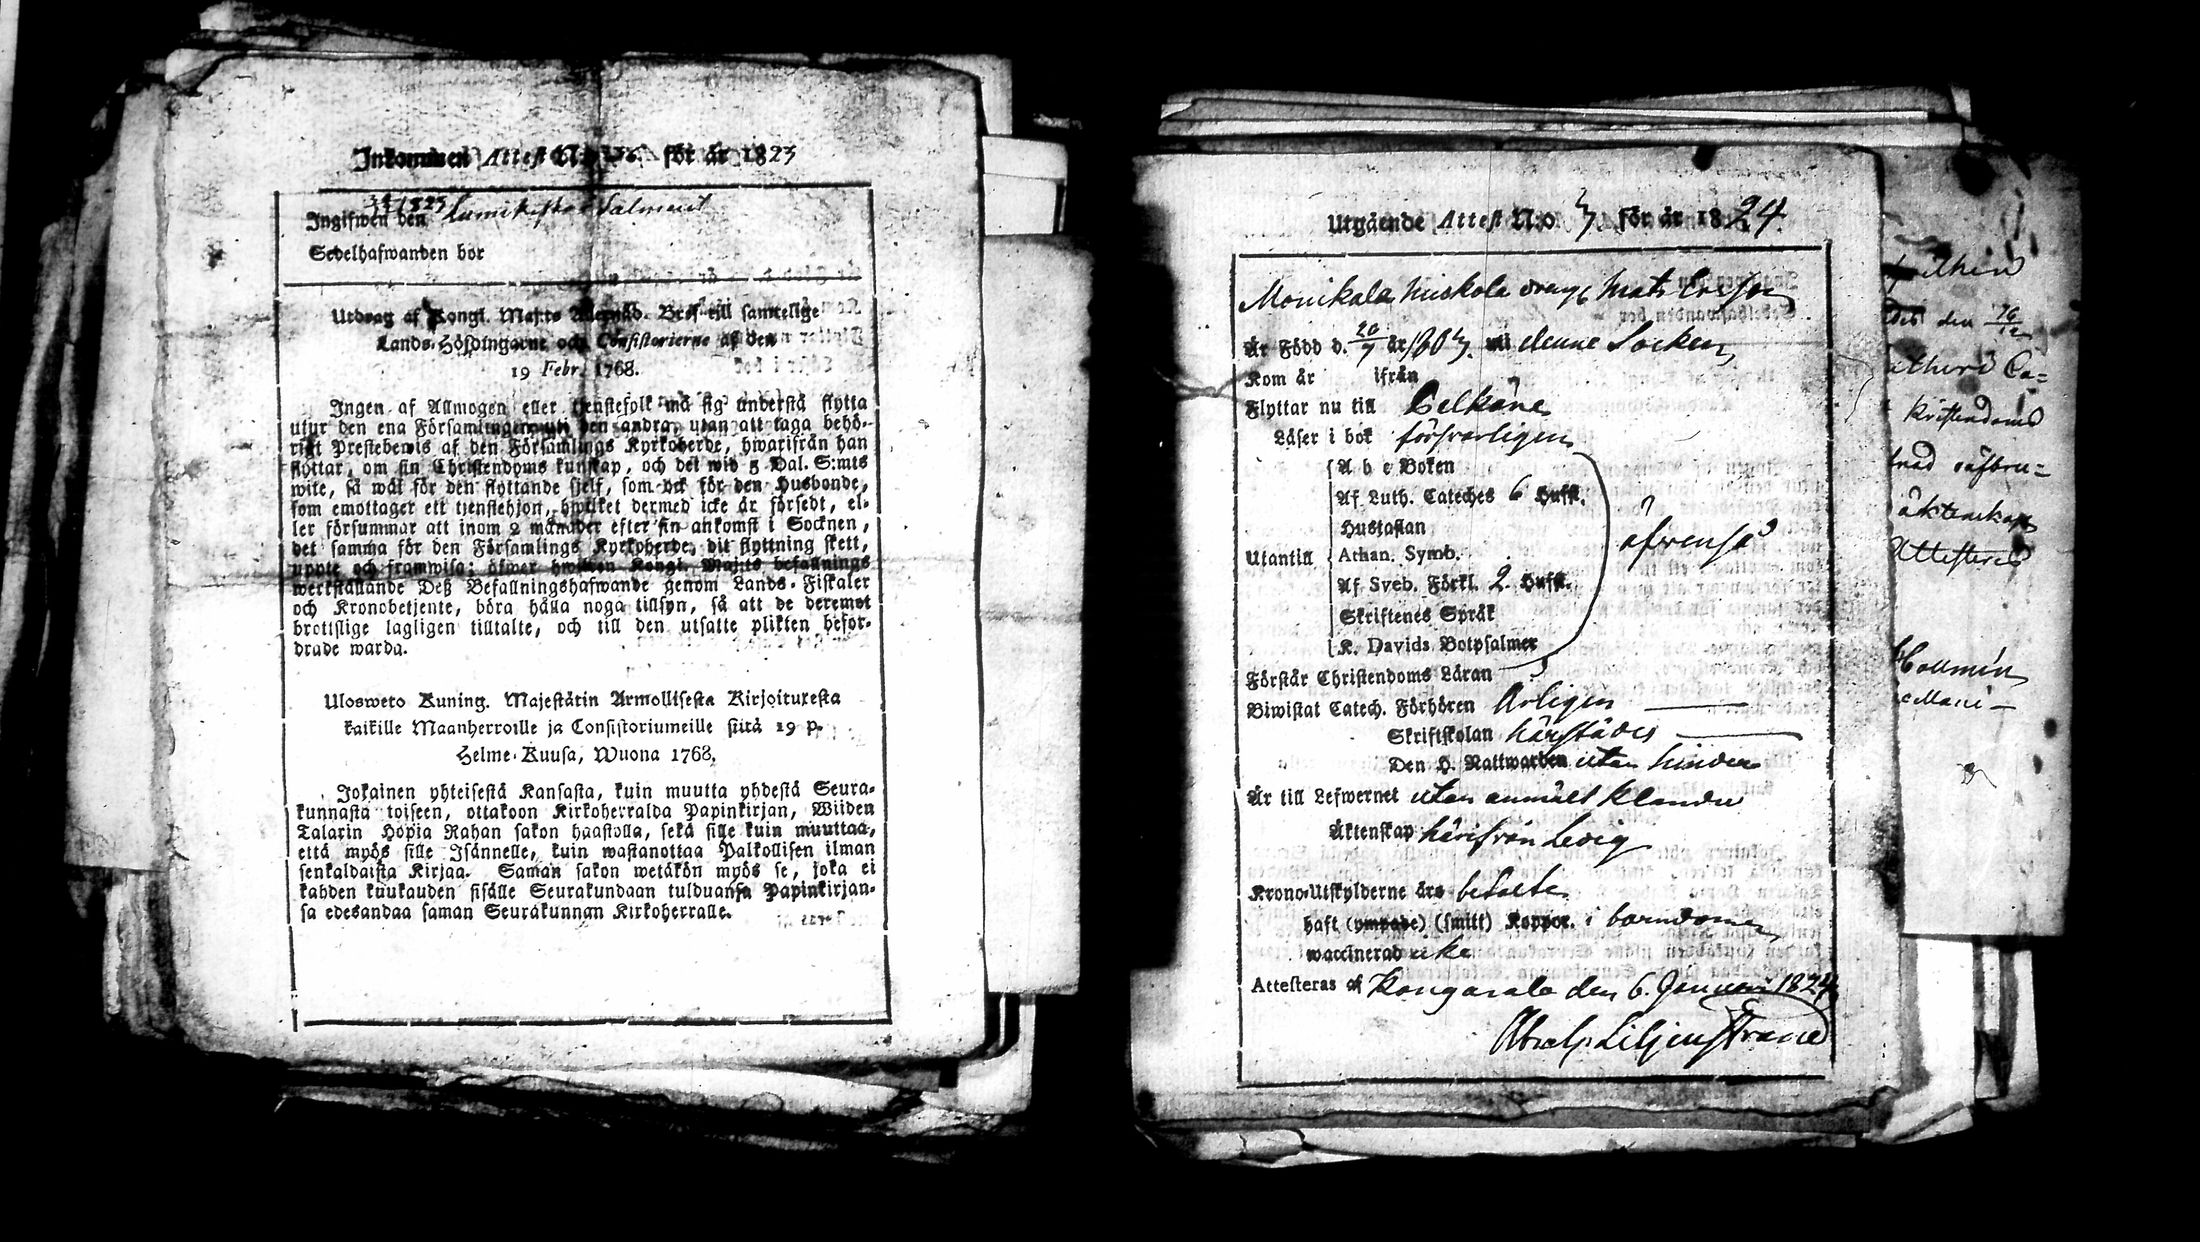 Inkommen Attest N:o för år 1823
1823 Lumikesko Salment
Ingifwen den
Sedelhafwanden bor
Utdrag af Kongl. Maj:ts Allernåd. Bref till samtelige
Lands-Höfdingarne och Consistorierne af den
19 Febr. 1768.
Ingen af Allmogen eller tjenstefolk må sig understå flytta
utur den ena Församlingen uti den andra, utan att taga behö-
rigt Prestebewis af den Församlings Kyrkoherde, hwarifrån han
flyttar, om sin Christendoms kunskap, och det wid 5 Dal. S:mts
wite, så wäl för den flyttande sjelf, som ock för den Husbonde,
som emottager ett tjenstehjon, hwilket dermed icke är försedt, el-
ler försummar att inom 2 månader efter sin ankomst i Socknen,
det samma för den Församlings Kyrkoherde, dit flyttning skett,
uppte och framwisa; öfwer hwilken Kongl. Maj:ts befallnings
werkställande Deß Befallningshafwande genom Lands-Fiskaler
och Kronobetjente, böra hålla noga tillsyn, så att de deremot
brottslige lagligen tilltalte, och till den utsatte plikten befor-
drade warda.
Ulosweto Kuning. Majestätin Armollisesta Kirjoituxesta
kaikille Maanherroille ja Consistoriumeille siitä 19 p.
Helme-Kuusa, Wuona 1768.
Jokainen yhteisestä Kansasta, kuin muutta yhdestä Seura-
kunnasta toiseen, ottakoon Kirkoherralda Papinkirjan, Wiiden
Talarin Hopia Rahan sakon haastolla, sekä sille kuin muuttaa,
että myös sille Isännelle, kuin wastanottaa Palkollisen ilman
senkaldaista Kirjaa. Saman sakon wetäkön myös se, joka ei
kahden kuukauden sisälle Seurakundaan tulduansa Papinkirjan-
sa edesandaa saman Seurakunnan Kirkoherralle.
Utgående Attest N:o 3 för år 1824.
Monikala Huskola dräng Mats Ersson
Är Född d. 20/7 år 1803. uti denne Socken
Kom år ifrån
Flyttar nu till Pelkäne
Läser i bok försvarligen
A b c Boken
Af Luth. Cateches 6 Hufst.
Hustaflan
Utantill Athan. Symb. öfvenså
Af Sveb. Förkl. 2 Hufst.
Skriftenes Språk
K. Davids Botpsalmer
Förstår Christendoms Läran
Biwistat Catech. Förhören Årligen
Skriftskolan härstädes
Den H. Nattwarden utan hinder
Är till Lefwernet utan anmält klander
Äktenskap härifrån Ledig
Krono-Utskylderne äro betalte
haft (ympade) (smitt) Koppor. i barndomen,
waccinerad icke
Attesteras af Kangasala den 6. Januari 1824
Abrah. Liljenstrand
den 26/12
Kristendoms
äktenskap
Attesteras